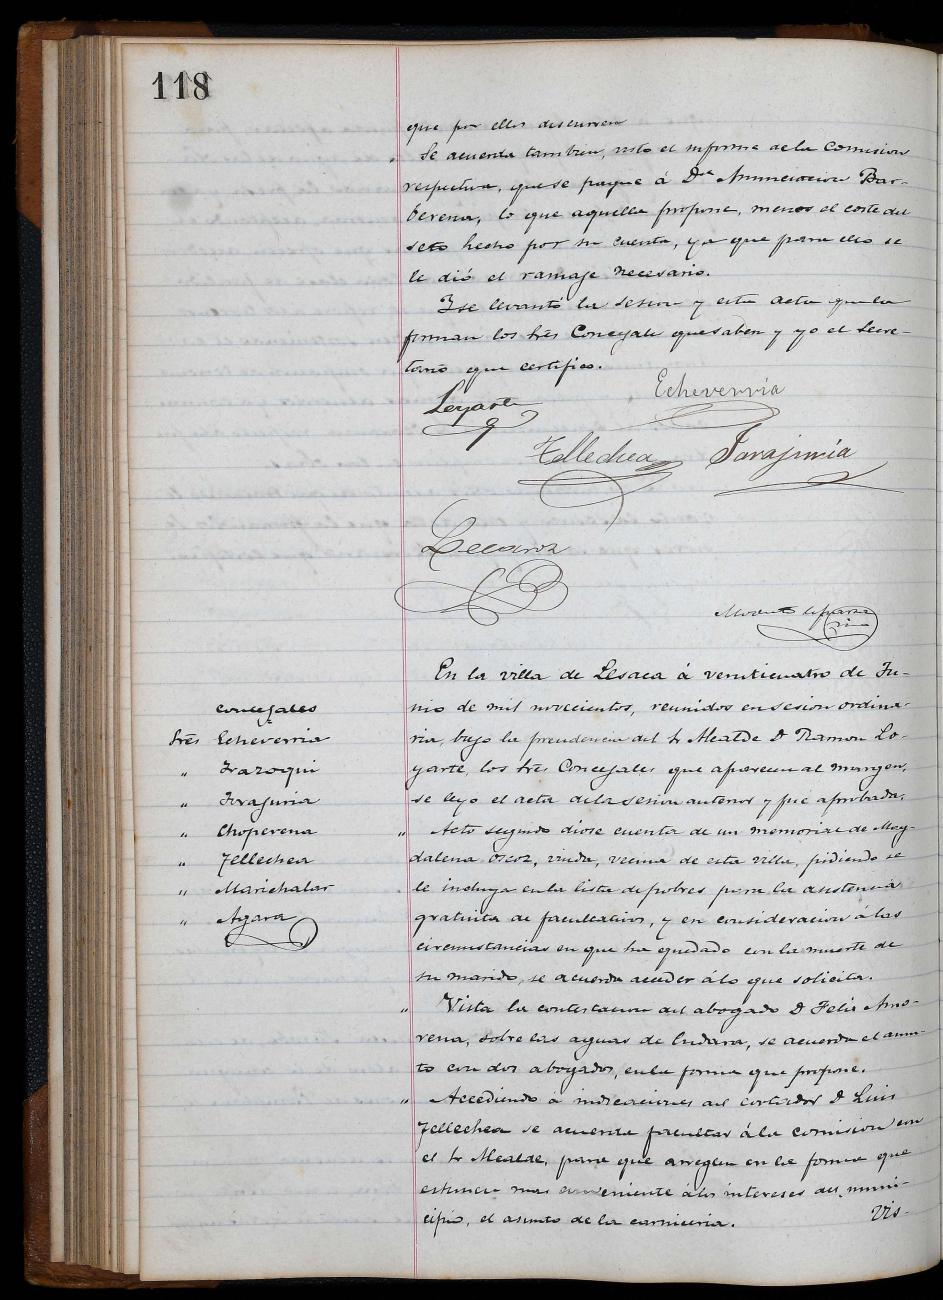 118
que por ellos discurren
Se acuerda tambien, visto el informe de la Comision
respectiva, que se pague á Dª Anunciacion Bar-
berena, lo que aquella propone, menos el coste del
seto hecho por su cuenta, ya que para ello se
le dió el ramaje necesario.
Y se levantó la sesion y esta acta que la
firman los tres Concejales que saben y yo el Secre-
tario que certifico.
Loyarte
Echeverria
Tellechea
Irazoqui
Lecaroz
En la villa de Lesaca á venticuatro de Ju-
nio de mil novecientos, reunidos en sesion ordina-
ria, bajo la presidencia del Sr Alcalde D Ramon Lo-
yarte, los Sres Concejales que aparecen al margen,
se leyo el acta de la sesion anterior y fue aprobada.
concejales
Sres Echeverria
" Irazoqui
" Irajuria
" Choperena
" Tellechea
" Marichalar
" Agara
" Acto segundo diose cuenta de un memorial de Mag-
dalena Oscoz, viuda, vecina de esta villa, pidiendo se
le incluya en la lista de pobres para la asistencia
gratuita de facultativos, y en consideracion á las
circunstancias en que ha quedado con la muerte de
su marido, se acuerda acceder á lo que solicita.
" Vista la contestacion del abogado D Felix Amo-
rena, sobre las aguas de Endara, se acuerda el asun-
to con dos abogados, en la forma que propone.
" Accediendo a indicaciones del cortador D Luis
Tellechea se acuerda facultar á la comision con
el Sr Alcalde, para que arreglen en la forma que
estimen mas conveniente á los intereses del muni-
cipio, el asunto de la carniceria.
Vis-